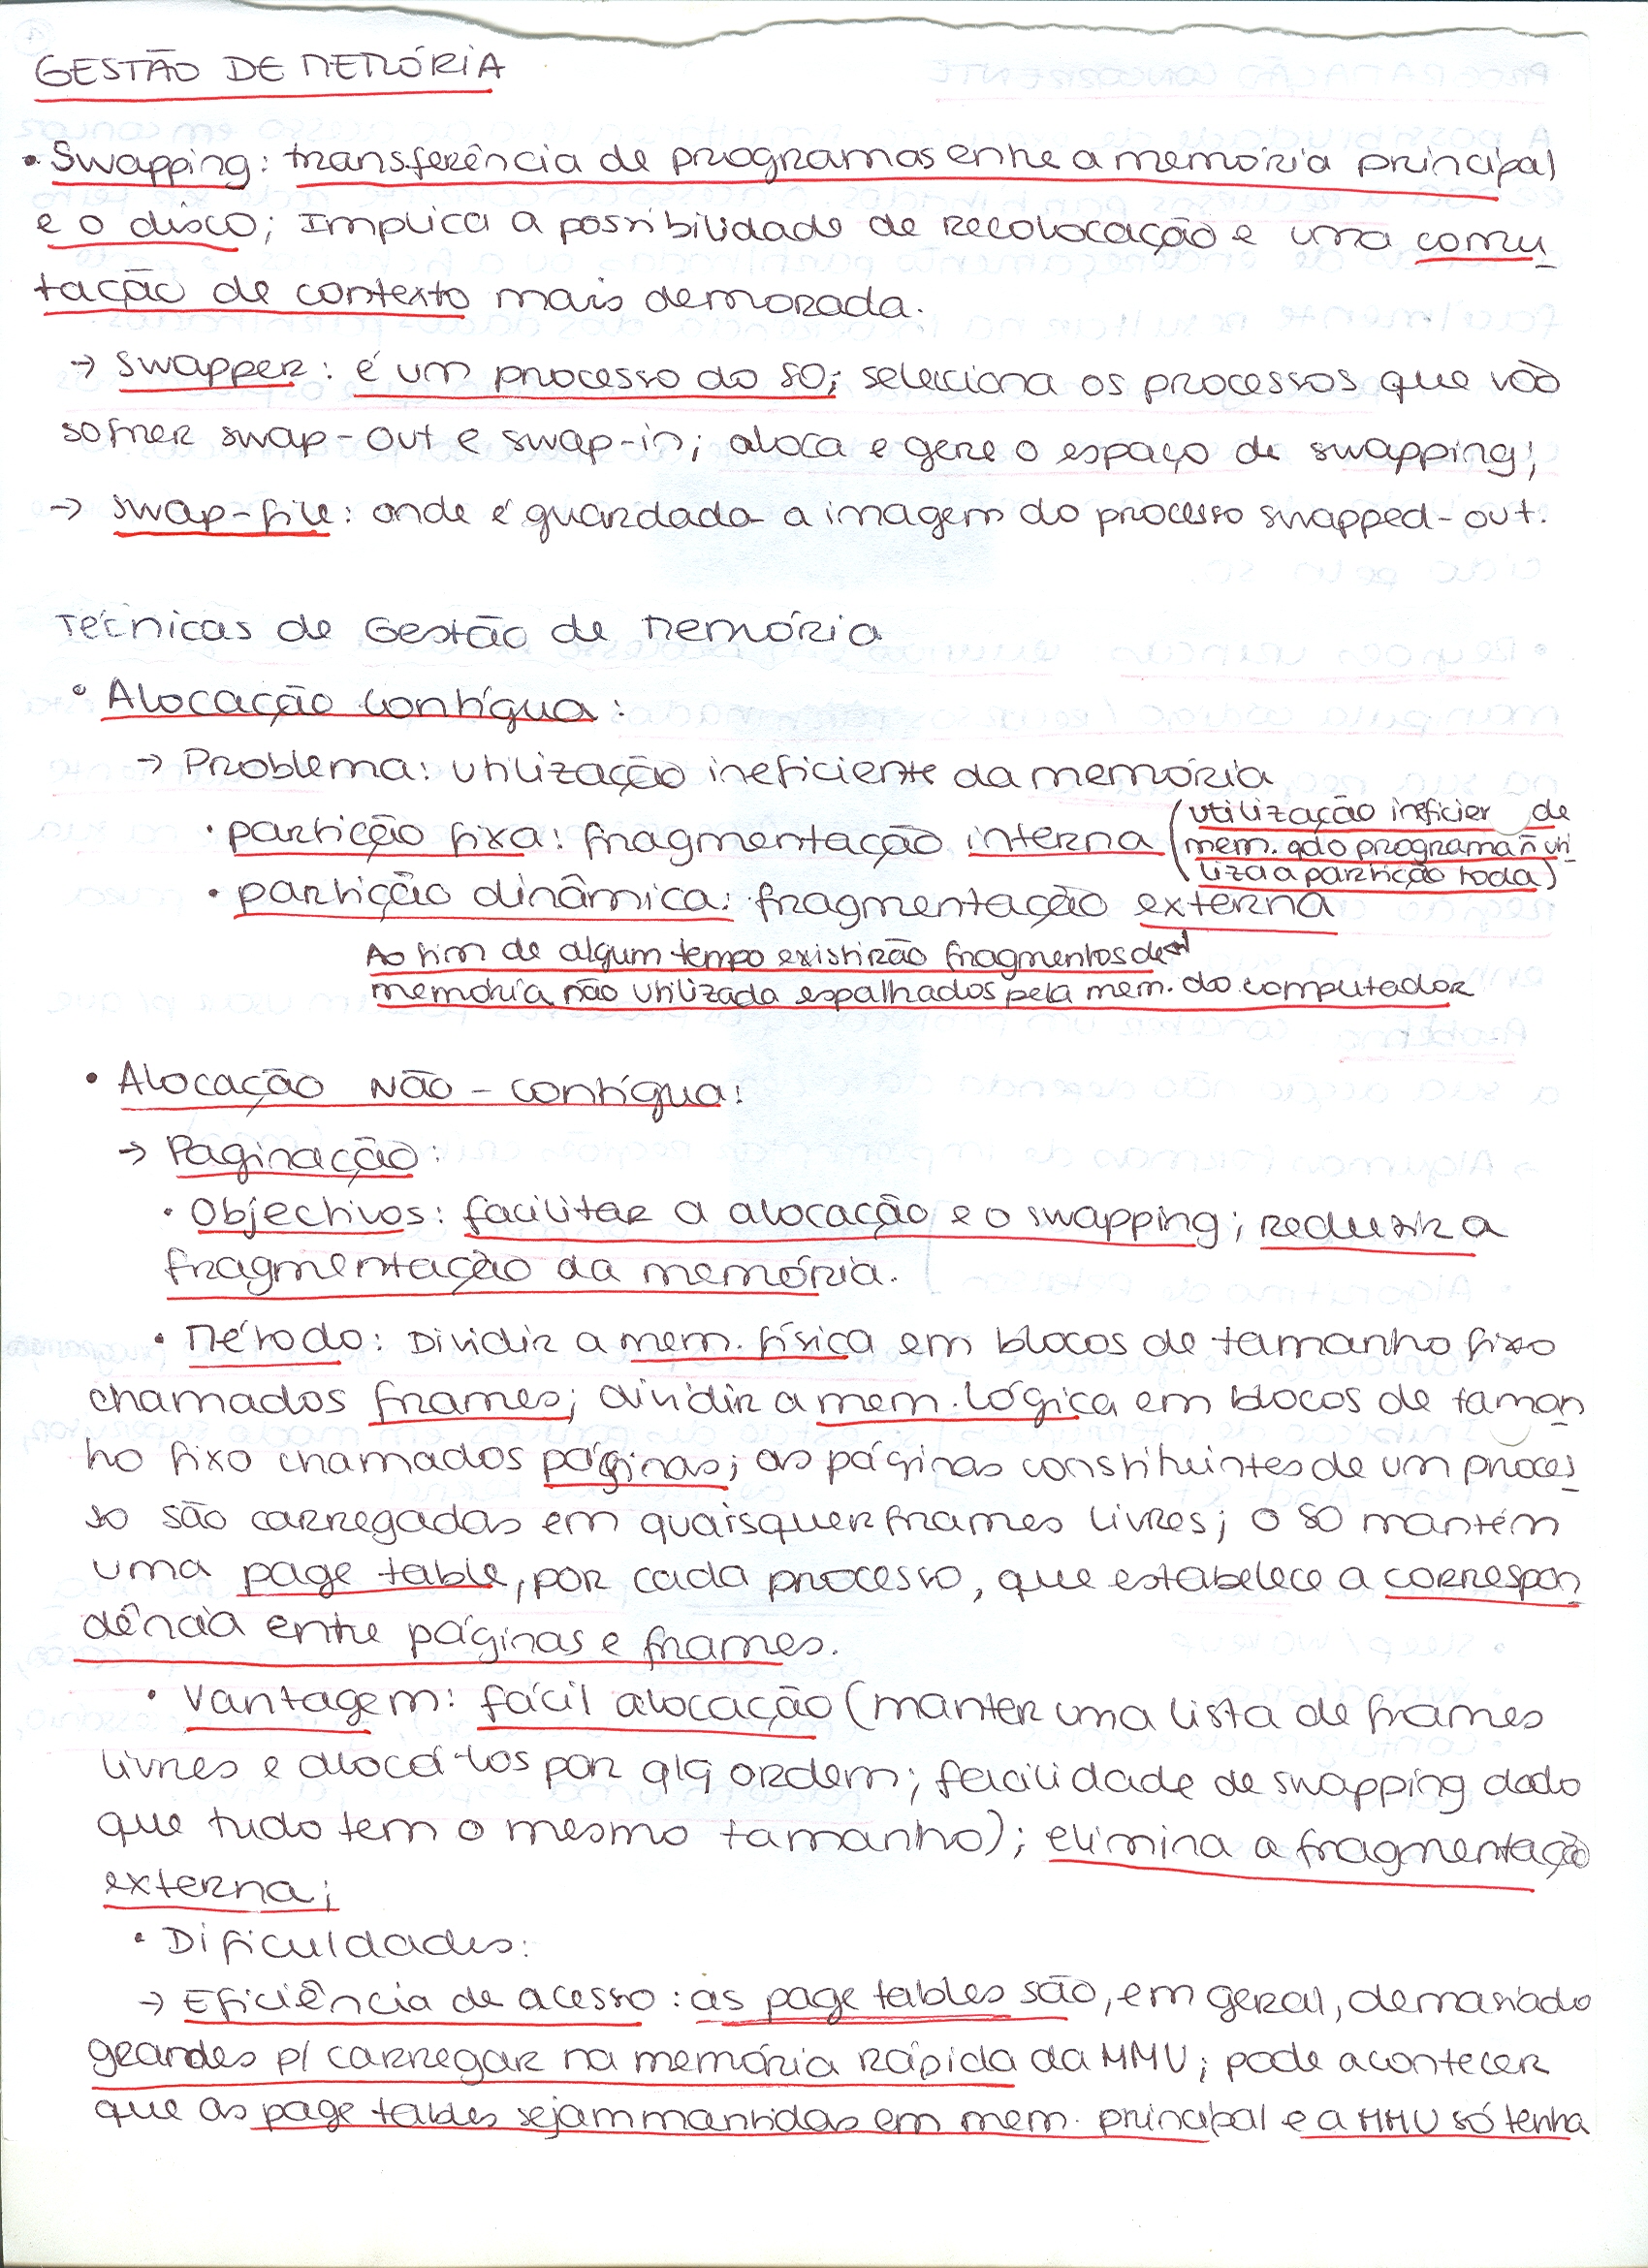 GESTÃO DE MEMÓRIA
• Swapping: transferência de programas entre a memória principal
e o disco; Implica a possibilidade de recolocação e uma comu
tação de contexto mais demorada.
→ Swapper: é um processo do SO; seleciona os processos que vão
sofrer swap-out e swap-in; aloca e gere o espaço de swapping;
→ swap-file: onde é guardada a imagem do processo swapped-out.
Técnicas de Gestão de Memória
• Alocação Contígua:
→ Problema: utilização ineficiente da memória
• partição fixa: fragmentação interna (utilização ineficien de
mem. qdo programa ñ uti
liza a partição toda)
• partição dinâmica: fragmentação externa
Ao fim de algum tempo existirão fragmentos de
memória não utilizada espalhados pela mem. do computador
• Alocação Não-Contígua:
→ Paginação:
• Objectivos: facilitar a alocação e o swapping; reduzir a
fragmentação da memória.
• Método: Dividir a mem. física em blocos de tamanho fixo
chamados frames; dividir a mem. lógica em blocos de taman
ho fixo chamados páginas; as páginas constituintes de um proces
so são carregadas em quaisquer frames livres; o SO mantém
uma page table, por cada processo, que estabelece a correspon
dência entre páginas e frames.
• Vantagem: fácil alocação (manter uma lista de frames
livres e alocá-los por qlq ordem; facilidade de swapping dado
que tudo tem o mesmo tamanho); elimina a fragmentação
externa;
• Dificuldades:
→ Eficiência de acesso: as page tables são, em geral, demasiado
grandes p/ carregar na memória rápida da MMU; pode acontecer
que as page tables sejam mantidas em mem. principal e a MMU só tenha